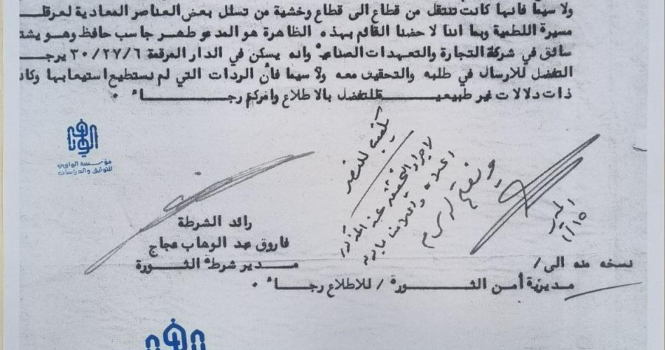 ولا سيما فانها كانت تنتقل من قطاع الى قطاع وخشية من تسلل بعض العناصر المعادية لعرقلة
مسيرة اللطمية وبما اننا لاحضنا القائم بهذه الظاهرة هو المدعو طهر جاسب حافظ وهو يشتغل
سائق في شركة التجارة والتعهدات الصناعية وانه يسكن في الدار المرقمة ٣٠/٢٧/٦ يرجى
التفضل للارسال في طلبه والتحقيق معه ولا سيما فأن الردات التي لم نستطيع استيعابها وكانت
ذات دلالات غير طبيعية للتفضل بالاطلاع وامركم رجاءً ٠
مؤسسة الوافي
للتوثيق والدراسات
رائد الشرطة
فاروق عبد الوهاب عجاج
مدير شرطة الثورة
نسخه منه الى /
مديرية أمن الثورة / للاطلاع رجاءً ٠